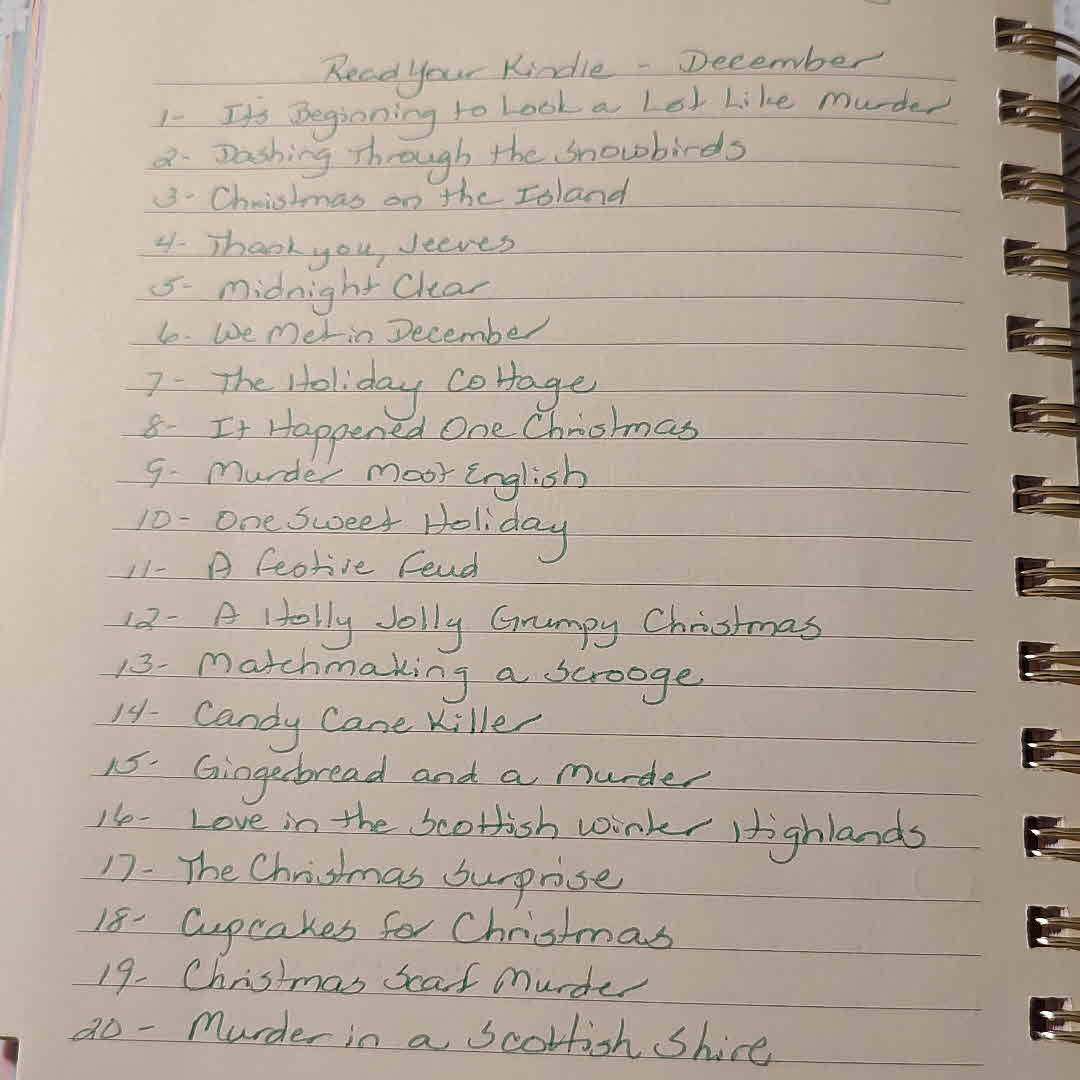 Read Your Kindle - December
1- It's Beginning to Look a Lot Like Murder
2- Dashing Through the Snowbirds
3- Christmas on the Island
4- Thank you, Jeeves
5- Midnight Clear
6- We Met in December
7- The Holiday Cottage
8- It Happened One Christmas
9- Murder Most English
10- One Sweet Holiday
11- A Festive Feud
12- A Holly Jolly Grumpy Christmas
13- Matchmaking a Scrooge
14- Candy Cane Killer
15- Gingerbread and a Murder
16- Love in the Scottish Winter Highlands
17- The Christmas Surprise
18- Cupcakes for Christmas
19- Christmas Scarf Murder
20- Murder in a Scottish Shire